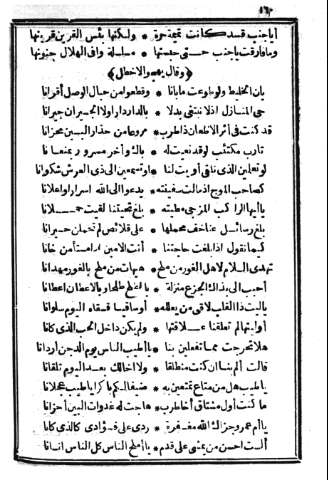 أياجنب قد كانت تميمة حرة * ولكنها بئس القرين قرينها
وما فارقت ياجنب حتى حبستها * مسلسلة واف الهلال جنونها
﴿وقال يهجو الاخطل﴾
بان الخليط ولو طوعت مابانا * وقطعوا من حبال الوصل أقرانا
حي المنازل اذلا نبتغى بدلا * بالدار دارا ولا الجيران جيرانا
قد كنت فى أثر الاظعان ذا طرب * مروعا من حذار البين محزانا
يارب مكتئب لو قد نعيت له * باك وآخر مسرور بمنعانا
لوتعلمين الذى نلقى أويت لنا * أوتسمعين الى ذى العرش شكوانا
كصاحب الموج اذ مالت سفينته * يدعوالى الله اسرارا واعلانا
ياأيها الراكب المزجى مطيته * بلغ تحيتنا لقيت حملانا
بلغ رسائل عنا خف محملها * على قلائص لم تحملن حيرانا
كيما نقول اذا بلغت حاجتنا * أنت الامين اذا مستأمن خانا
تهدى السلام لاهل الغور من ملح * هيهات من ملح بالغور مهدانا
أحبب الى بذاك الجزع منزلة * بالطلح طلحا وبالاعطان أعطانا
ياليت ذا القلب لاقى من يعلله * أوساقيا فسقاه اليوم سلوانا
أوليتها لم تعلقنا علاقتها * ولم يكن داخل الحب الذى كانا
هلا تحرجت مما تفعلين بنا * ياأطيب الناس يوم الدجن أردانا
قالت ألم بنا ان كنت منطلقا * ولا اخالك بعد اليوم تلقانا
ياطيب هل من متاع تمتعين به * ضيفا لكم باكرا ياطيب عجلانا
ما كنت أول مشتاق أخاطرب * هاجت له غدوات البين أحزانا
ياأم عمرو جزاك الله مغفرة * ردى على فؤادى كالذى كانا
ألست أحسن من يمشى على قدم * ياأملح الناس كل الناس انسانا